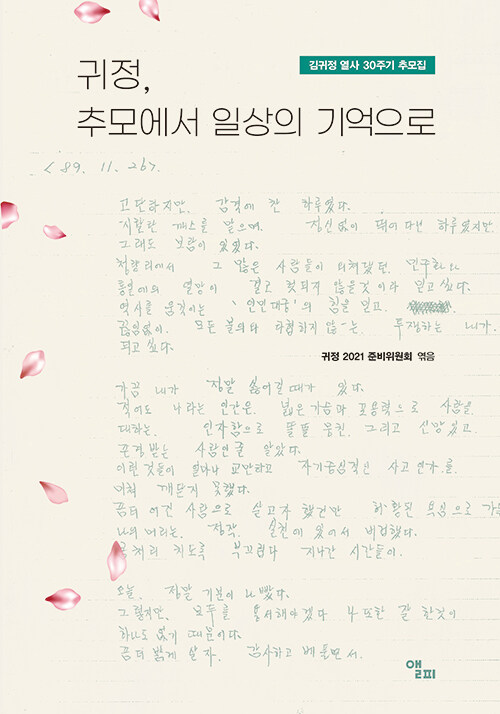 김귀정 열사 30주기 추모집
귀정,
추모에서 일상의 기억으로
<89. 11. 26>.
고단하지만, 감격에 찬 하루였다.
지랄탄 깨스를 맡으며, 정신없이 뛰어다닌 하루였지만
그래도 보람이 있었다.
청량리에서 그 많은 사람들이 외쳐댔던, 민주화와
통일에의 열망이 결코 헛되지 않을것이라 믿고 싶다.
역사를 움직이는 '민민대중'의 힘을 믿고,
끊임없이, 모든 불의와 타협하지 않는, 투쟁하는 내가,
되고 싶다.
귀정 2021 준비위원회 엮음
가끔 내가 정말 싫어질때가 있다.
적어도 나라는 인간은, 넓은가슴과 포용력으로 사람을
대하는, 인자함으로 똘똘 뭉친, 그리고 신망있고,
존경받는 사람인줄 알았다.
이런것들이 얼마나 교만하고 자기중심적인 사고인가를,
미처 깨닫지 못했다.
좀더 여긴 사람으로 살고자 했건만 허황된 욕심으로 가득
나의 머리는, 정작, 실천에 있어서 비겁했다.
몸서리 치도록 부끄럽다 지나간 시간들이.
오늘, 정말 기분이 나빴다.
그렇지만, 모두를 용서해야겠다 나 또한 잘 한것이
하나도 없기 때문이다.
좀더 밝게 살자, 감사하고 베풀면서.
앨피